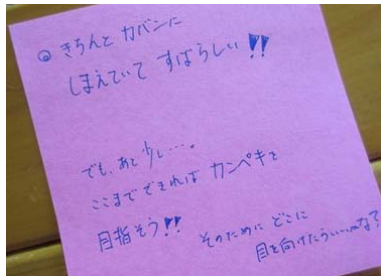 ◎ きちんと カバンに
しまえていて すばらしい!!
でも、あと少し…。
ここまでできれば カンペキを
目指そう!! そのために どこに
目を向けたらいいかな?